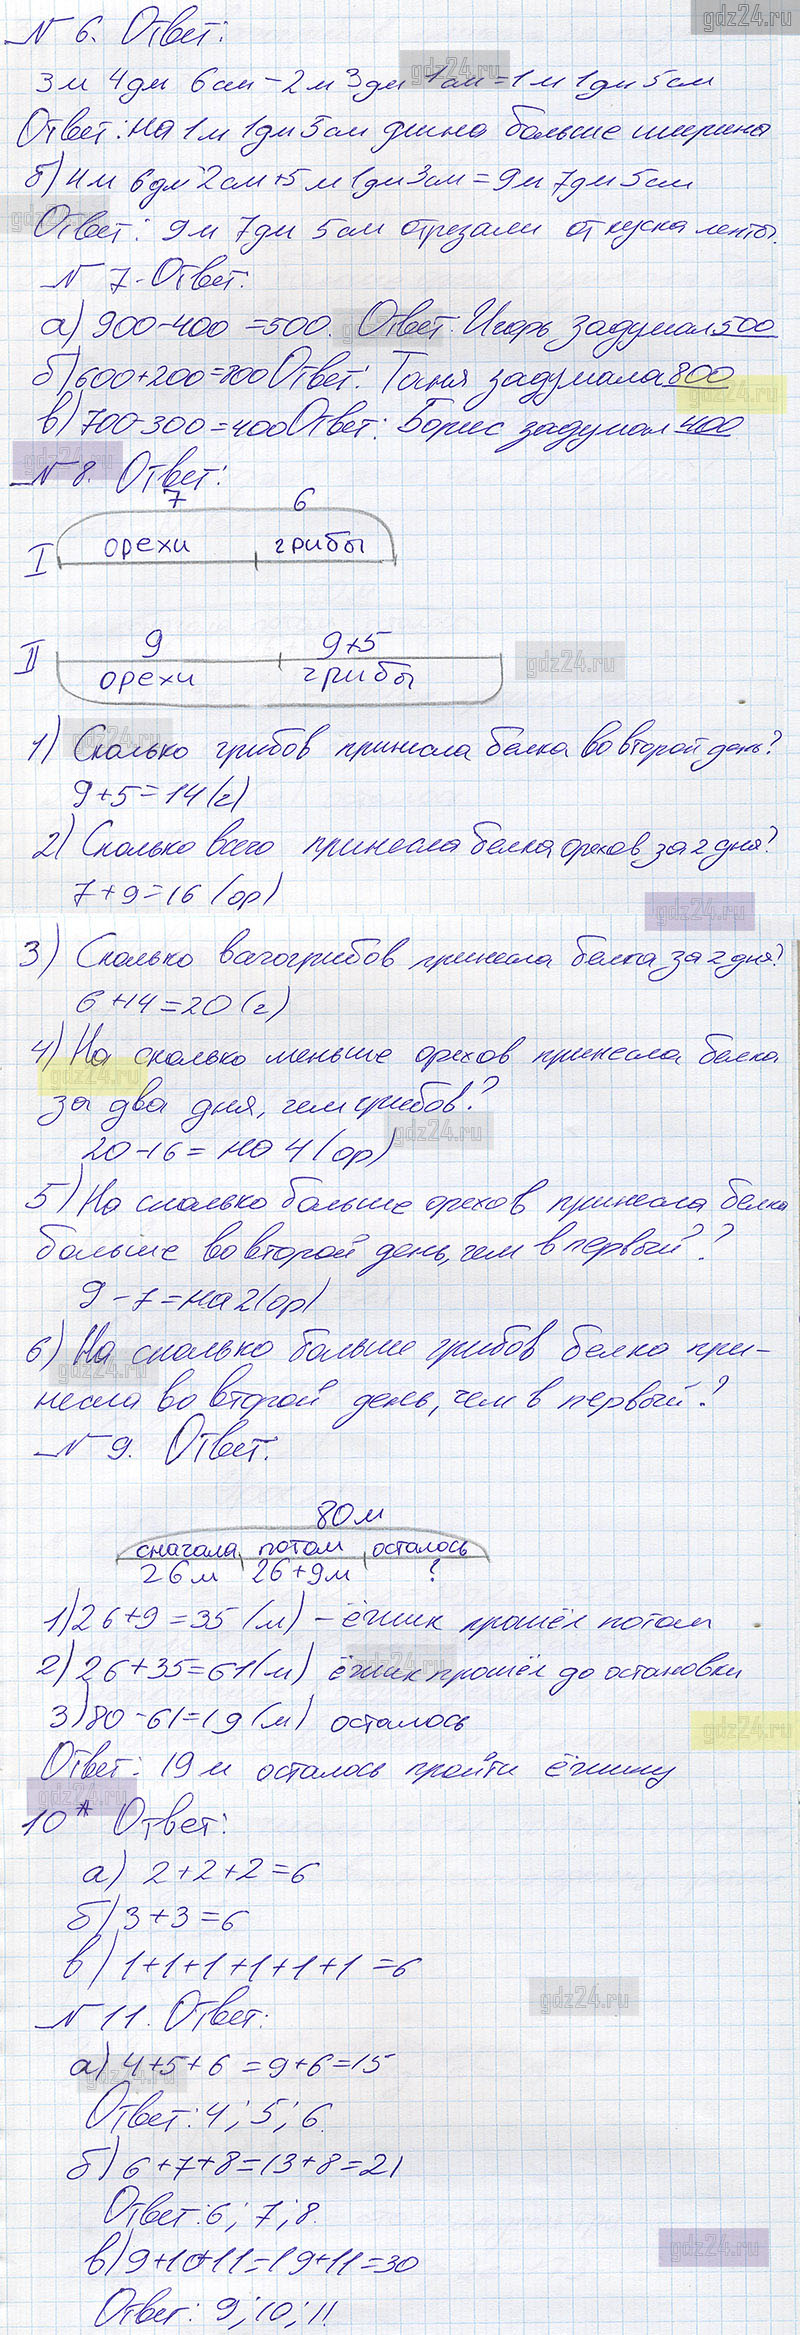 gdz24.ru
№ 6. Ответ:
3м 4дм 6см - 2м 3дм 1см = 1м 1дм 5см
Ответ: на 1м 1дм 5см длина больше ширина
б) 4м 6дм 2см + 5м 1дм 3см = 9м 7дм 5см
Ответ: 9м 7дм 5см отрезали от куска ленты.
№ 7. Ответ:
а) 900-400 = 500. Ответ: Игорь задумал 500
б) 600+200=800 Ответ: Таня задумала 800
в) 700-300=400 Ответ: Борис задумал 400
№ 8. Ответ:
7 6
I орехи грибы
9 9+5
II орехи грибы
1) Сколько грибов принесла белка во второй день?
9+5=14(г)
2) Сколько всего принесла белка орехов за 2 дня?
7+9=16 (ор)
3) Сколько грибов принесла белка за 2 дня?
6+14=20(г)
4) На сколько меньше орехов принесла белка
за два дня, чем грибов?
20-16= на 4 (ор)
5) На сколько больше орехов принесла белка
больше во второй день, чем в первый??
9-7=на 2(ор)
6) На сколько больше грибов белка при-
несла во второй день, чем в первый?
№ 9. Ответ:
80м
сначала потом осталось
26м 26+9м ?
1) 26+9=35 (м) - ёжик прошёл потом
2) 26+35=61(м) ёжик прошёл до остановки
3) 80-61=19(м) осталось
Ответ: 19м осталось пройти ёжику
10* Ответ:
а) 2+2+2=6
б) 3+3=6
в) 1+1+1+1+1+1=6
№ 11. Ответ:
а) 4+5+6=9+6=15
Ответ: 4; 5; 6.
б) 6+7+8=13+8=21
Ответ: 6; 7; 8.
в) 9+10+11=19+11=30
Ответ: 9; 10; 11.